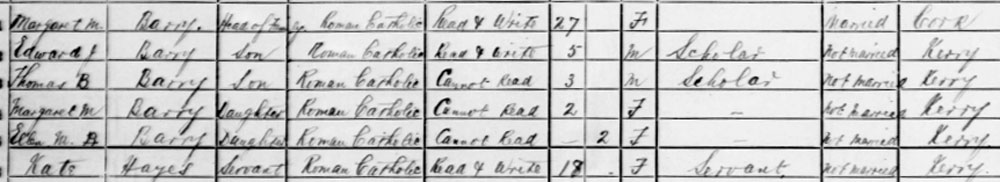 Margaret M. Barry. Head of Family Roman Catholic Read & Write 27 F Married Cork
Edward J Barry Son Roman Catholic Read & Write 5 M Scholar Not Married Kerry
Thomas B Barry Son Roman Catholic Cannot Read 3 M Scholar Not Married Kerry
Margaret M Barry Daughter Roman Catholic Cannot Read 2 F - Not Married Kerry
M. B Barry Daughter Roman Catholic Cannot Read - 2 F - Not Married Kerry
Kate Hayes Servant Roman Catholic Read & Write 18 . F Servant Not Married Kerry